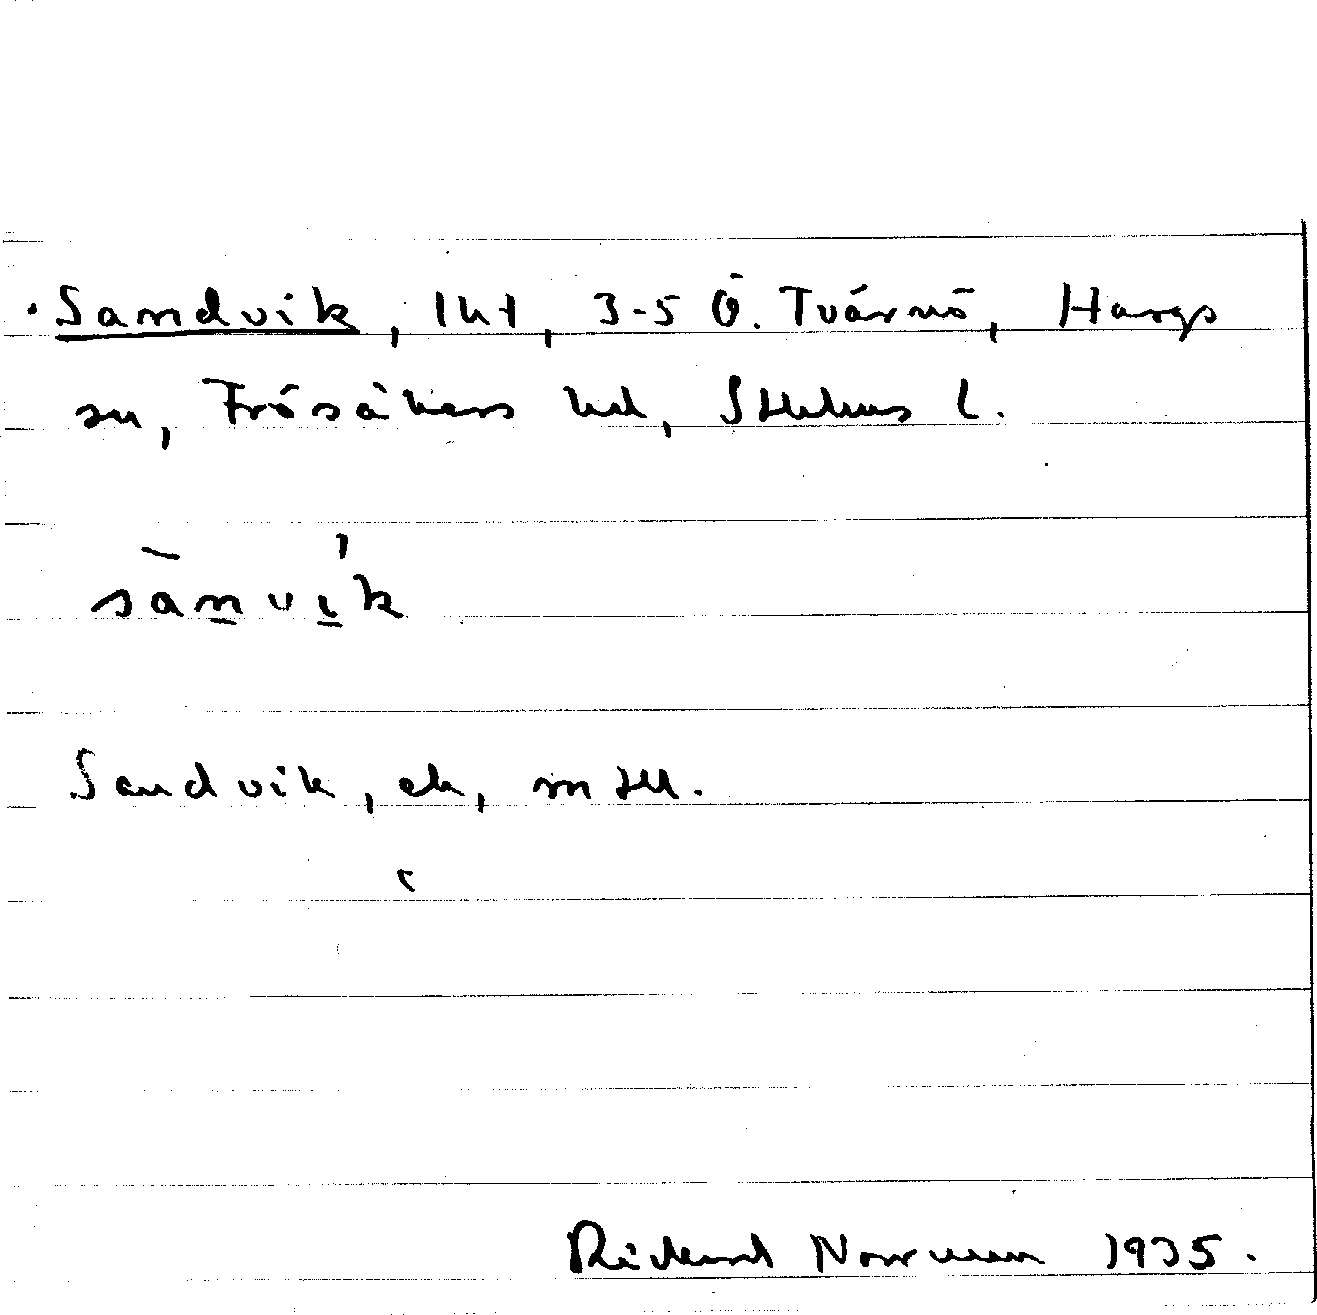 Sandvik, lht, 3-5 Ö. Tvärnö, Hargs
sn, Frösåkers hd, Sthlms l.
sànvi̱k
Sandvik, ek, m Hll.
Rickard Norrman 1935.